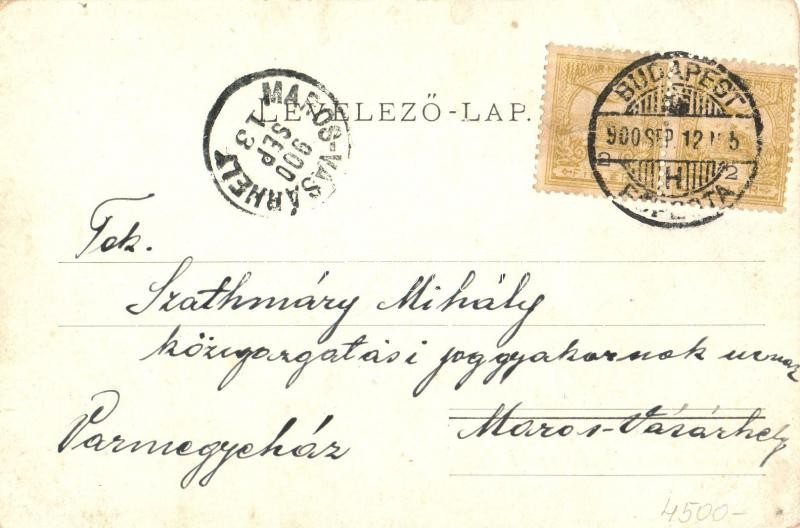 LEVELEZŐ-LAP.
MAROS-VÁSÁRHELY
900
SEP
13
BUDAPEST
900 SEP. 12
H
FŐPOSTA
Tek.
Szathmáry Mihály
közigazgatási joggyakornok urnak
Maros-Vásárhely
Varmegyeház
4500-